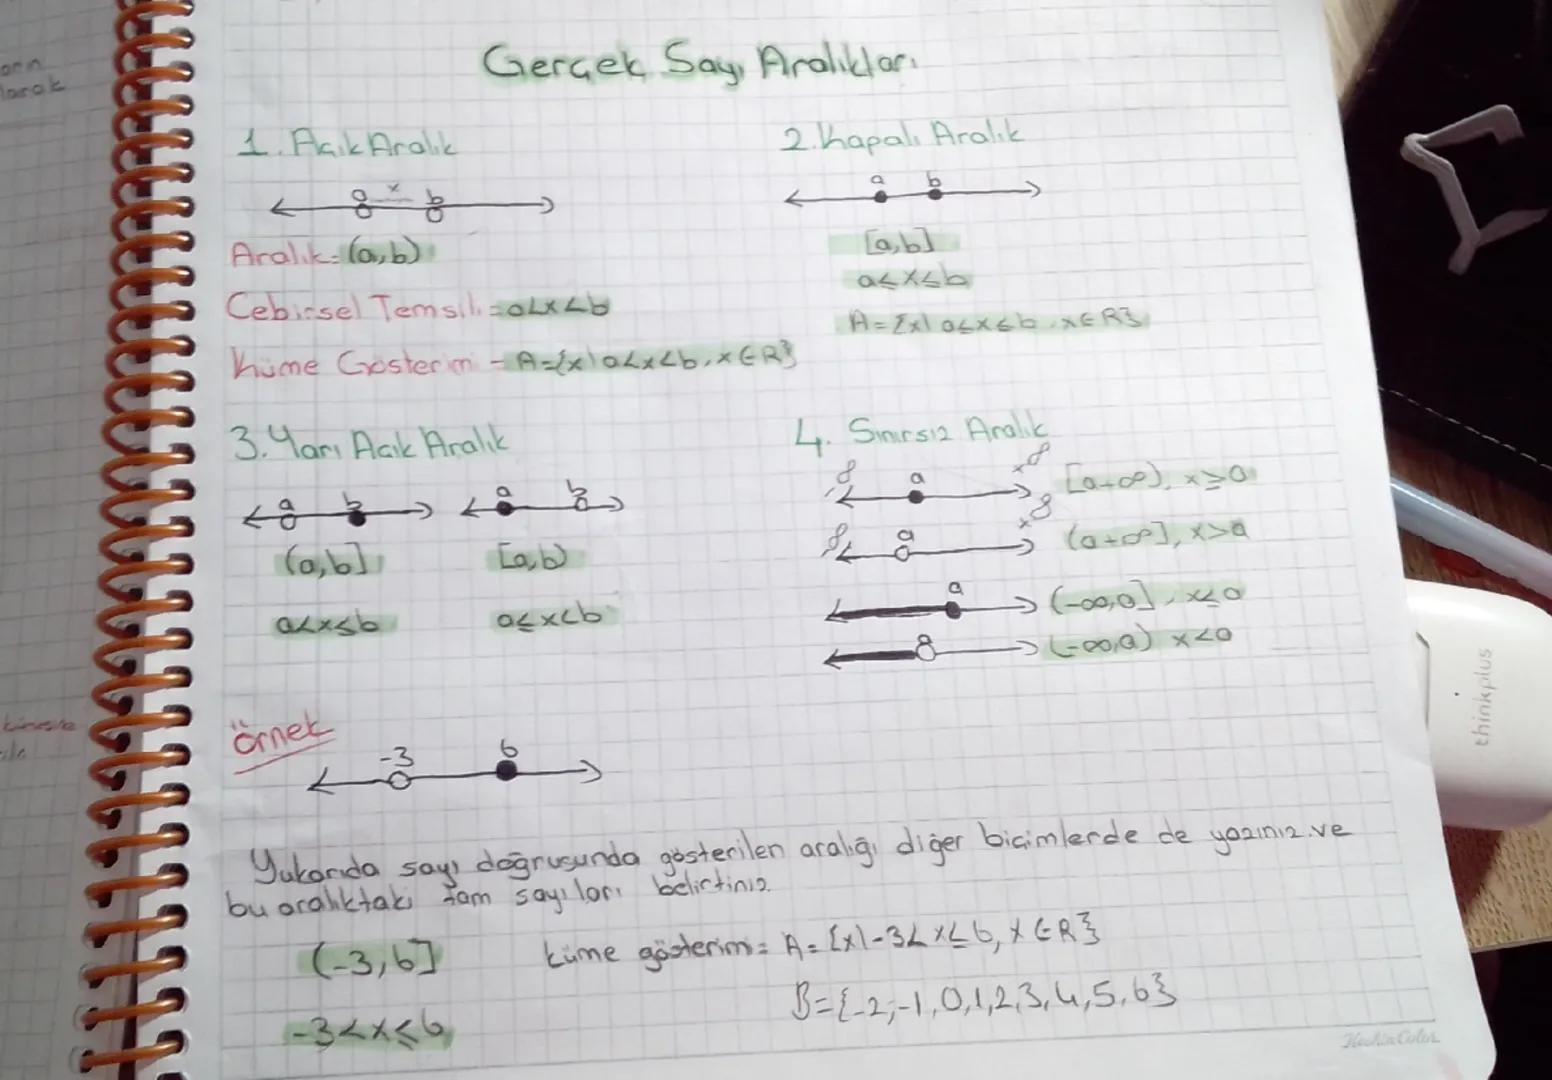 Gerçek Sayı Aralıkları
1. Açık Aralık
a x b
Aralık = (a,b)
Cebirsel Temsili = a<x<b
Küme Gösterimi = A={x|a<x<b, x∈R}
2. Kapalı Aralık
a b
[a,b]
a≤x≤b
A={x|a≤x≤b, x∈R}
3. Yarı Açık Aralık
a b a b
(a,b] [a,b)
a<x≤b a≤x<b
4. Sınırsız Aralık
-∞ a +∞ [a+∞), x≥a
-∞ a +∞ (a+∞], x>a
a (-∞,a], x≤a
a (-∞,a) x<a
Örnek
-3 6
Yukarıda sayı doğrusunda gösterilen aralığı diğer biçimlerde de yazınız.ve
bu aralıktaki tam sayıları belirtiniz.
(-3,6] küme gösterimi = A= {x|-3<x≤6, x∈R}
-3<x≤6 B={-2,-1,0,1,2,3,4,5,6}
thinkplus